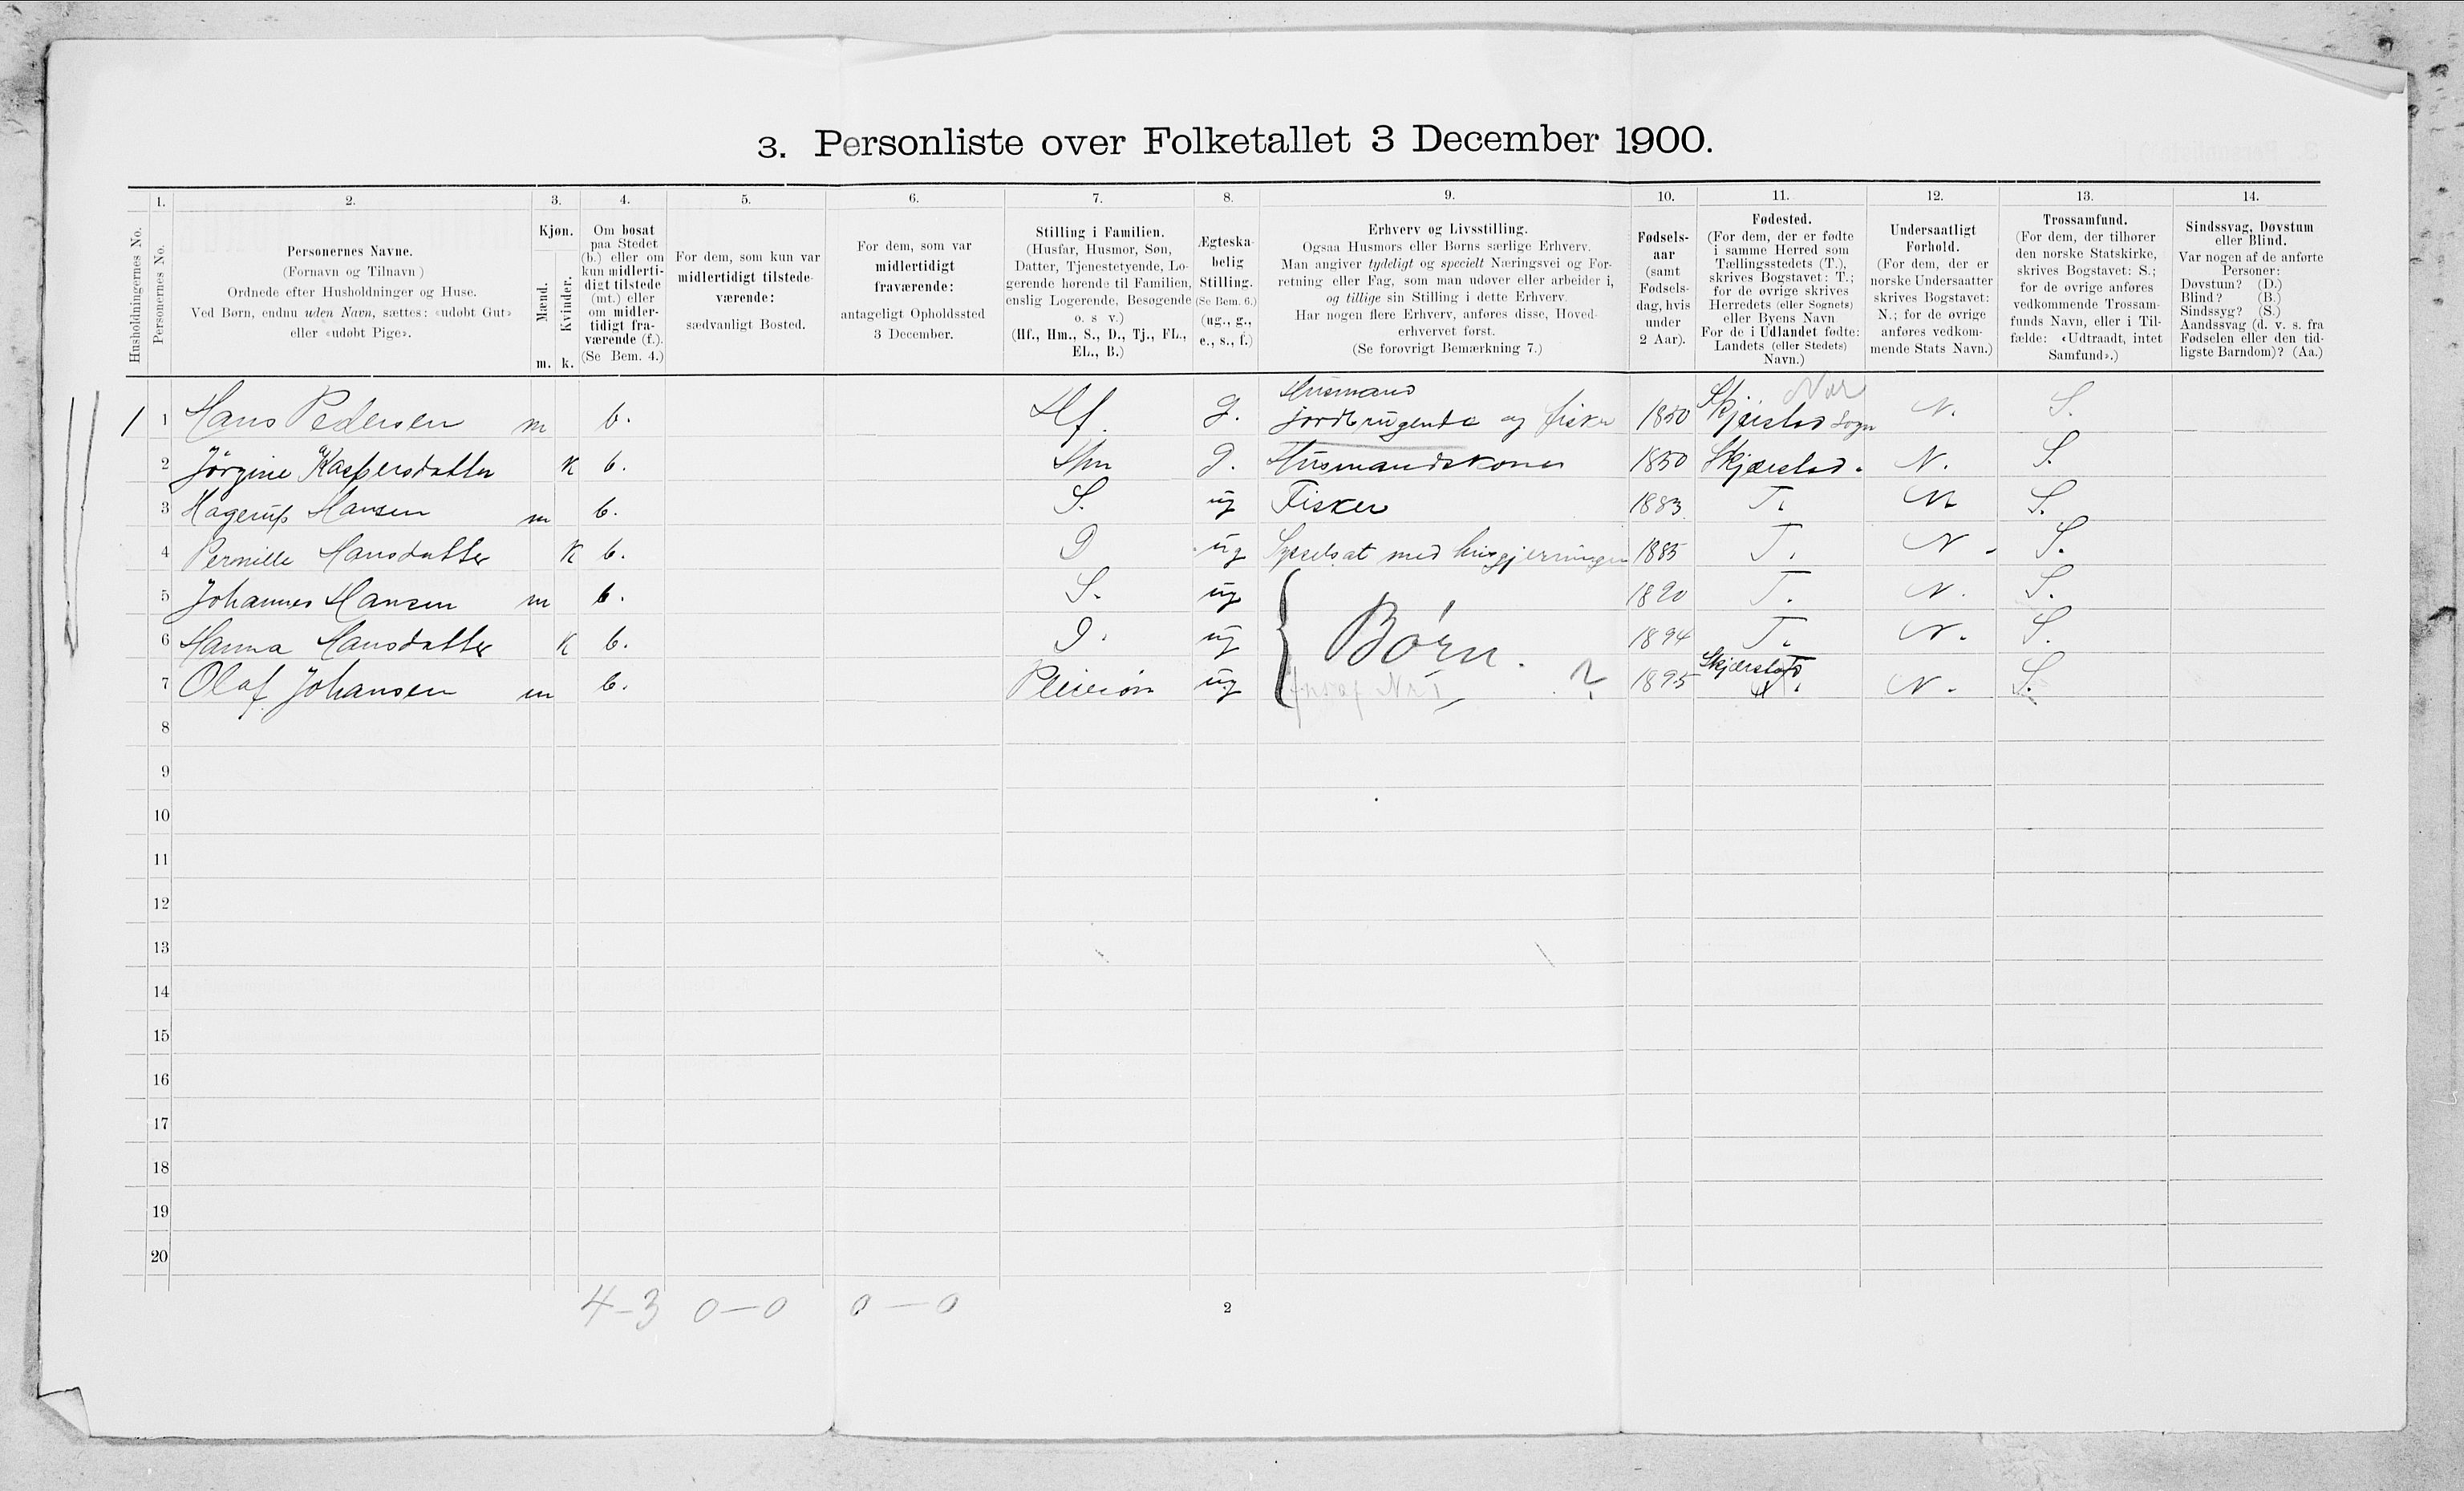 3. Personliste over Folketallet 3 December 1900.
Husholdningernes No.
1. Personernes No.
2.
Personernes Navne.
(Fornavn og Tilnavn)
Ordnede efter Husholdninger og Huse.
Ved Børn, endnu uden Navn, sættes: «udøbt Gut»
eller «udøbt Pige».
3.
Kjøn.
Mænd. Kvinder.
m. k.
4.
Om bosat
paa Stedet
(b.) eller om
kun midlerti-
digt tilstede
(mt.) eller
om midler-
tidigt fra-
værende (f.).
(Se Bem. 4.)
5.
For dem, som kun var
midlertidigt tilstede-
værende:
sædvanligt Bosted.
6.
For dem, som var
midlertidigt
fraværende:
antageligt Opholdssted
3 December.
7.
Stilling i Familien.
(Husfar, Husmor, Søn,
Datter, Tjenestetyende, Lo-
gerende hørende til Familien,
enslig Logerende, Besøgende
o. s v.)
(Hf., Hm., S., D., Tj., FL.,
EL., B.)
8.
Ægteska-
belig
Stilling.
(Se Bem. 6.)
(ug., g.,
e., s., f.)
9.
Erhverv og Livsstilling.
Ogsaa Husmors eller Børns særlige Erhverv.
Man angiver tydeligt og specielt Næringsvei og For-
retning eller Fag, som man udøver eller arbeider i,
og tillige sin Stilling i dette Erhverv.
Har nogen flere Erhverv, anføres disse, Hoved-
erhvervet først.
(Se forøvrigt Bemærkning 7.)
10.
Fødsels-
aar
(samt
Fødsels-
dag, hvis
under
2 Aar).
11.
Fødested.
(For dem, der er fødte
i samme Herred som
Tællingsstedets (T.),
skrives Bogstavet: T.;
for de øvrige skrives
Herredets (eller Sognets)
eller Byens Navn
For de i Udlandet fødte:
Landets (eller Stedets)
Navn.)
12.
Undersaatligt
Forhold.
(For dem, der er
norske Undersaatter
skrives Bogstavet:
N.; for de øvrige
anføres vedkom-
mende Stats Navn.)
13.
Trossamfund.
(For dem, der tilhører
den norske Statskirke,
skrives Bogstavet: S.;
for de øvrige anføres
vedkommende Trossam-
funds Navn, eller i Til-
fælde: «Udtraadt, intet
Samfund».)
14.
Sindssvag, Døvstum
eller Blind.
Var nogen af de anførte
Personer:
Døvstum? (D.)
Blind? (B.)
Sindssyg? (S.)
Aandssvag (d. v. s. fra
Fødselen eller den tid-
ligste Barndom)? (Aa.)
Husmand
1 1 Hans Pedersen m b. Hf. g. jordbrugende og fisker 1850 Skjerstad sogn N. S.
2 Jörgine Kaspersdatter K b. Hm g. Husmandskone 1850 Skjerstad. N. S.
3 Hagerup Hansen m b. S. ug Fisker 1883 T. N. S.
4 Pernille Hansdatter K b. D ug Sysselsat med husgjerninger 1885 T. N. S.
5 Johannes Hansen m b. S. ug 1890 T. N. S.
6 Hanna Hansdatter K b. D. ug Børn. 1894 T. N. S.
7 Olaf Johansen m b. Pleiesøn ug ? 1895 Skjerstad T. N. S.
8
9
10
11
12
13
14
15
16
17
18
19
20
4-3 0-0 0-0
2